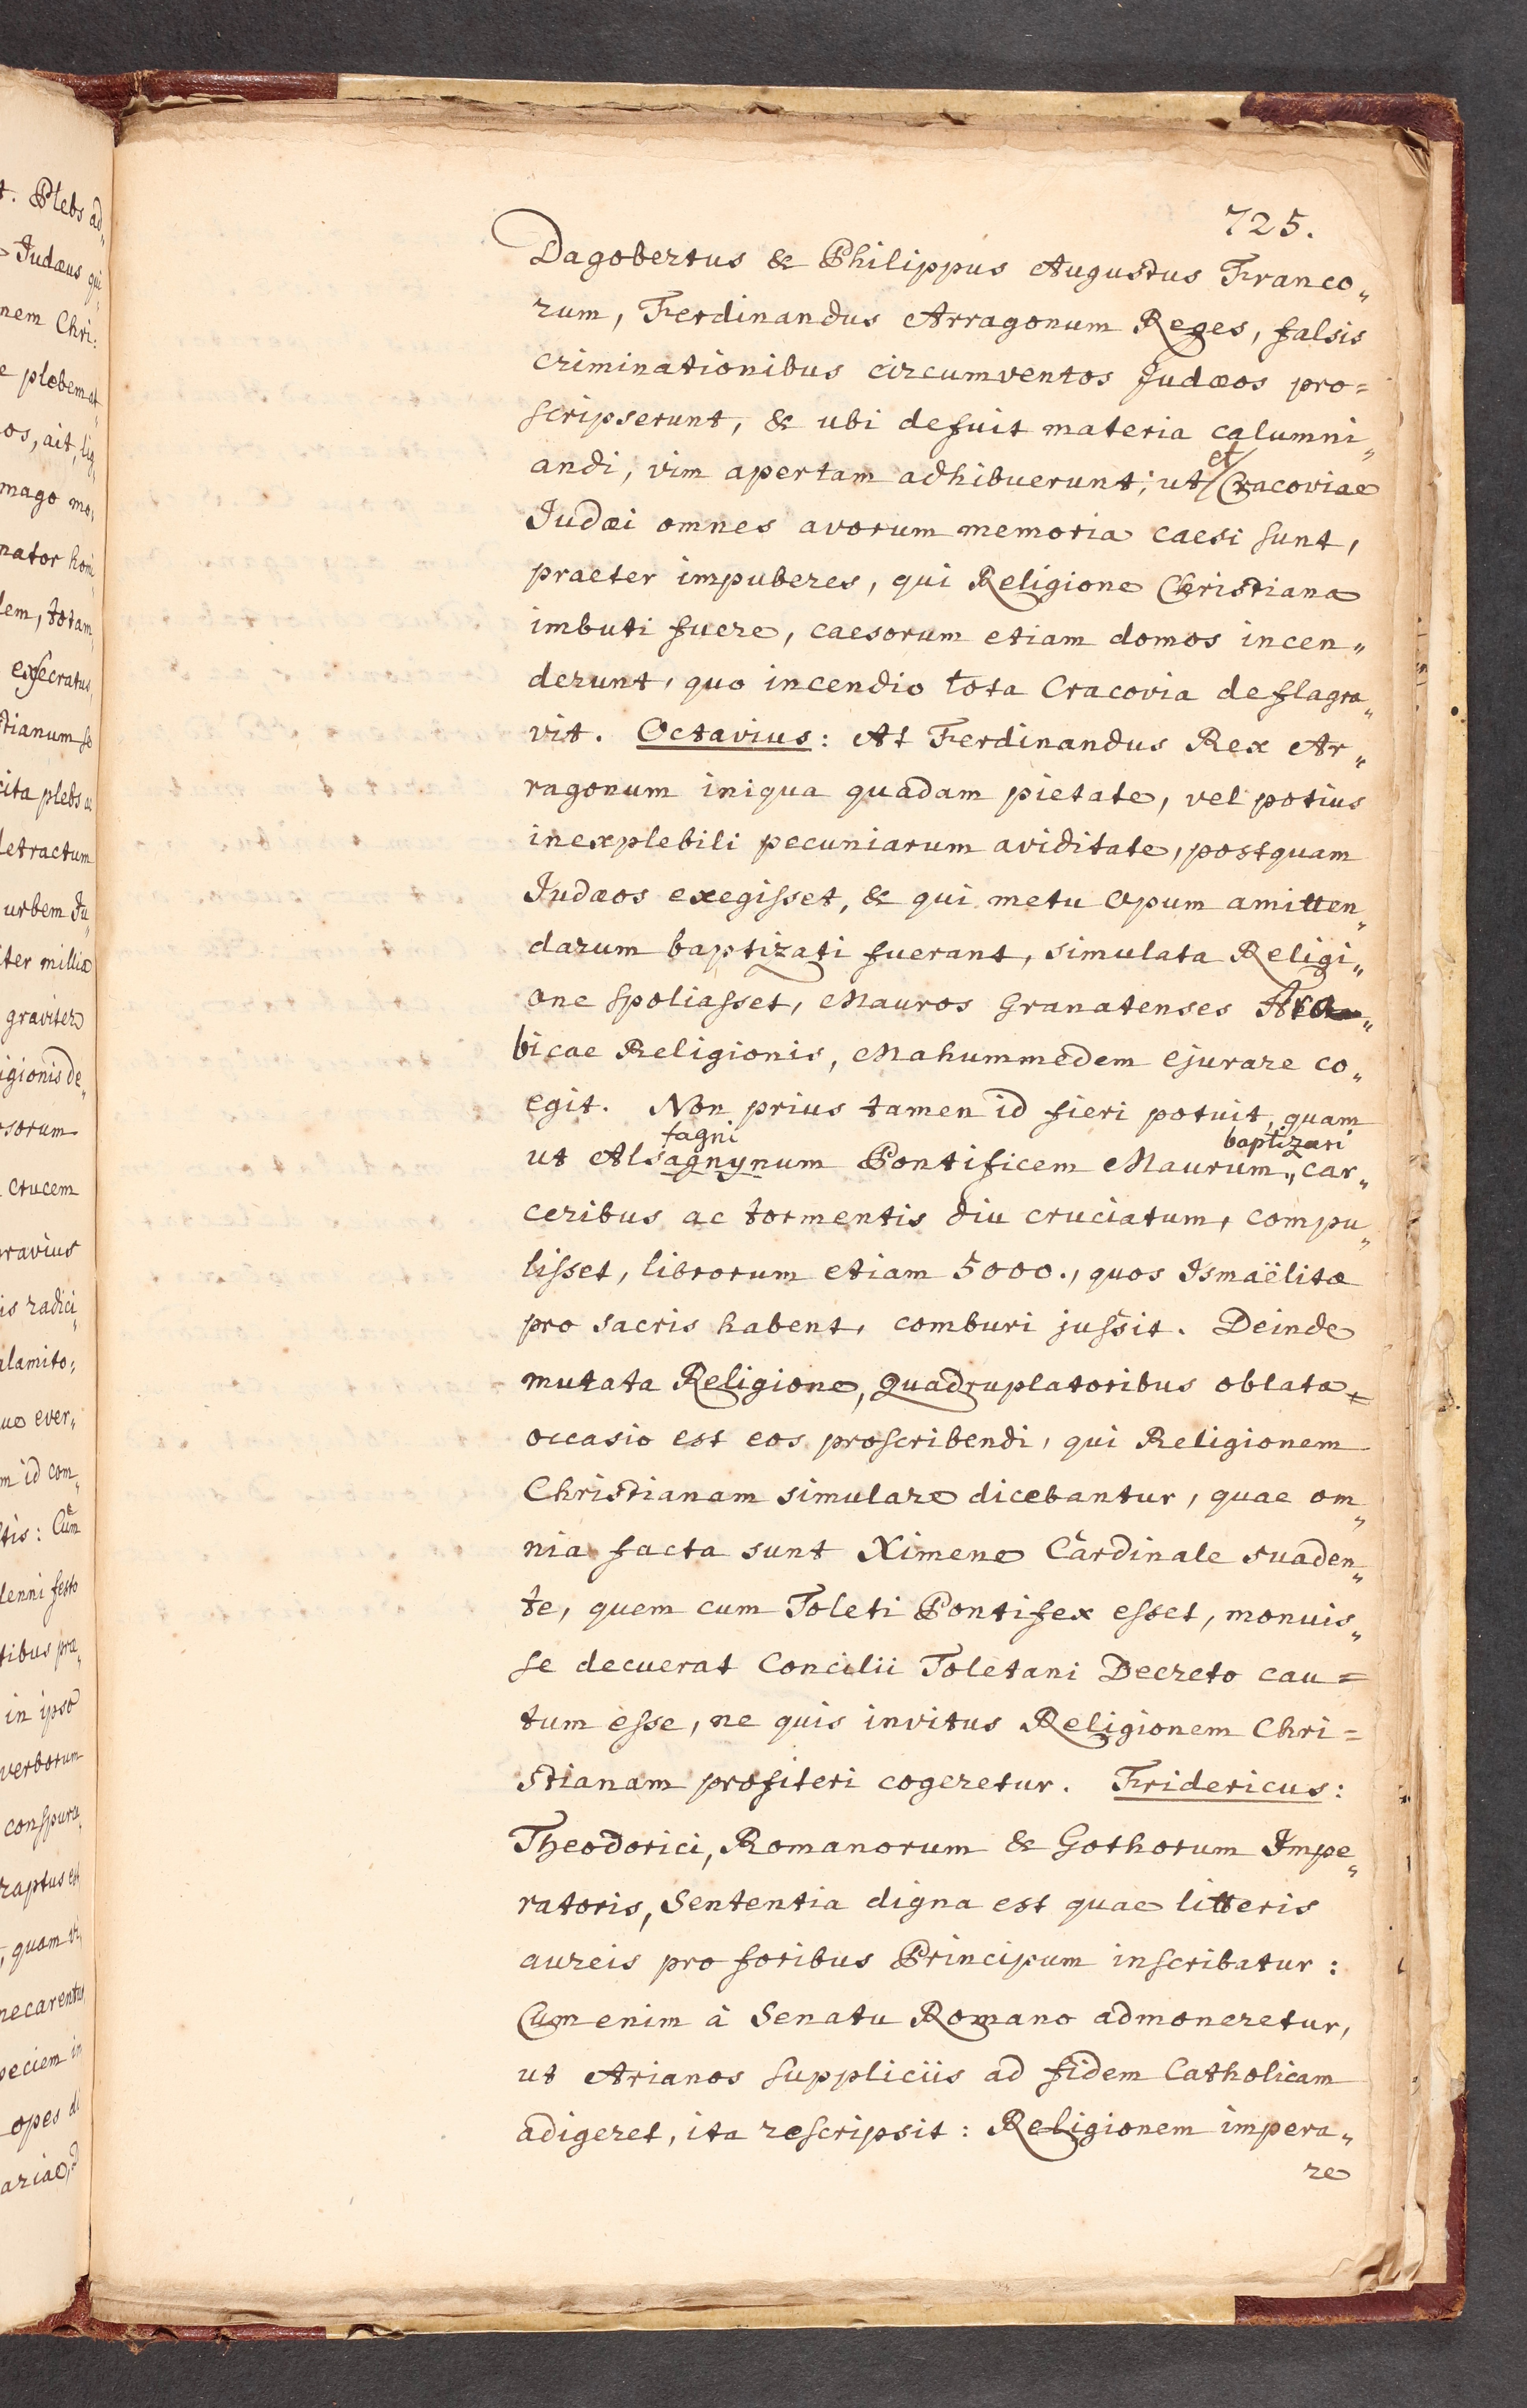 725.
Dagobertus & Philippus Augustus Franco„
rum, Ferdinandus Arragonum Reges, falsis
criminationibus circumventos Judæos pro=
scripserunt, & ubi defuit materia calumni„
andi, vim apertam adhibuerunt; ut et Cracoviae
Judæi omnes avorum memoria caesi sunt,
praeter impuberes, qui Religione Christiana
imbuti fuere, caesorum etiam domos incen„
derunt, quo incendio tota Cracovia deflagra„
vit. Octavius: At Ferdinandus Rex Ar„
ragonum iniqua quadam pietate, vel potius
inexplebili pecuniarum aviditate, postquam
Judæos exegisset, & qui metu opum amitten„
darum baptizati fuerant, simulata Religi„
one spoliasset, Mauros Granatenses Ara„
bicae Religionis, Mahummedem ejurare co„
egit. Non prius tamen id fieri potuit, quam
fagni baptizari
ut Alsagnynum Pontificem Maurum, car„
ceribus ac tormentis diu cruciatum, compu„
lisset, librorum etiam 5000., quos Ismaëlitæ
pro sacris habent, comburi jussit. Deinde
mutata Religione, Quadruplatoribus oblata
occasio est eos proscribendi, qui Religionem
Christianam simulare dicebantur, quae om„
nia facta sunt Ximene Cardinale suaden„
te, quem cum Toleti Pontifex esset, monuis„
se decuerat Concilii Toletani Decreto cau=
tum esse, ne quis invitus Religionem Chri=
stianam profiteri cogeretur. Fridericus:
Theodorici, Romanorum & Gothorum Impe„
ratoris, Sententia digna est quae litteris
aureis pro foribus Principum inscribatur:
Cum enim à Senatu Romano admoneretur,
ut Arianos suppliciis ad fidem Catholicam
adigeret, ita rescripsit: Religionem impera„
re